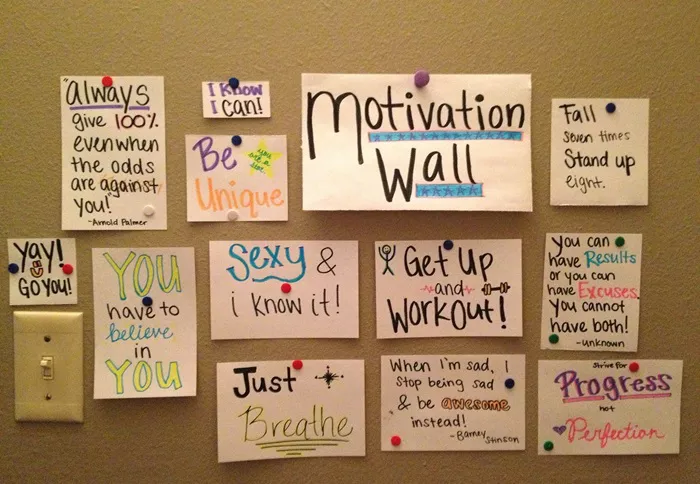 "Always
give 100%
even when
the odds
are against
you!"
~Arnold Palmer
I Know
I can!
Be
Unique
you are a star
Motivation
Wall
Fall
seven times
Stand up
eight.
Yay!
Go you!
YOU
have to
believe
in
YOU
Sexy &
i know it!
Get Up
and
Workout!
You can
have Results
or you can
have Excuses.
You cannot
have both!
~unknown
Just
Breathe
When I'm sad, I
stop being sad
& be awesome
instead!
~Barney
Stinson
strive for
Progress
not
Perfection